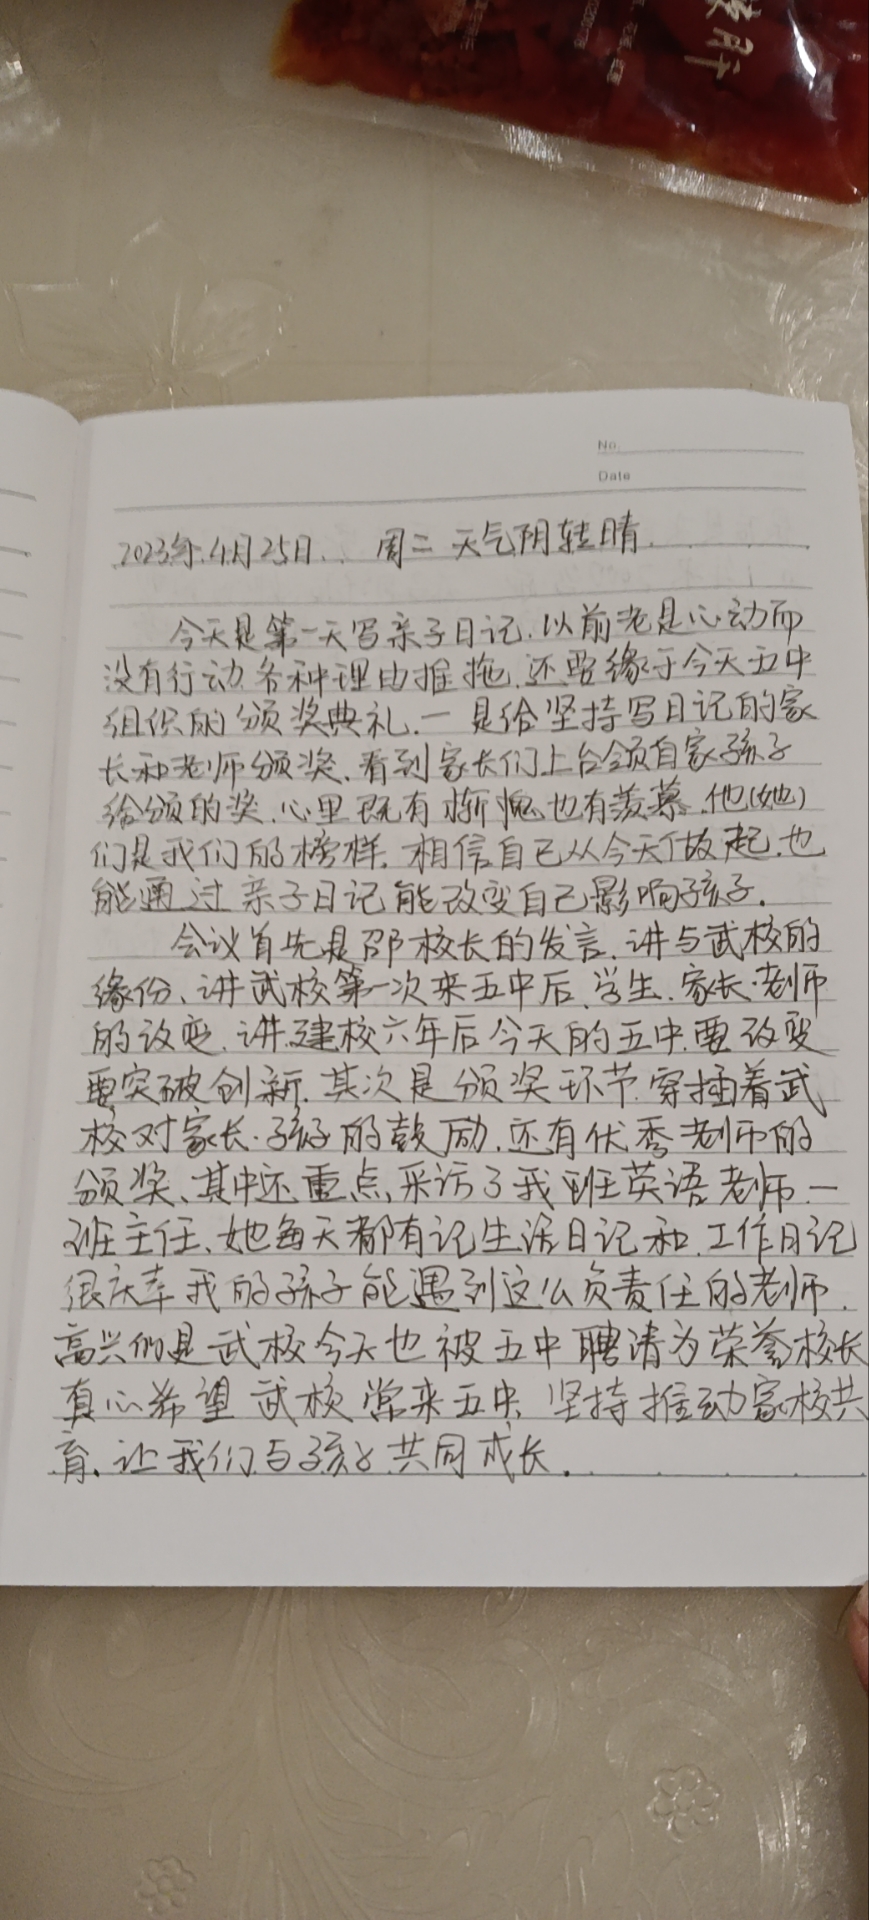 No.
Date
2023年.4月25日. 周二 天气阴转晴.
今天是第一天写亲子日记.以前老是心动而
没有行动.各种理由推拖.还要缘于今天五中
组织的颁奖典礼.一是给坚持写日记的家
长和老师颁奖、看到家长们上台领自家孩子
给颁的奖.心里既有惭愧也有羡慕.他(她)
们是我们的榜样.相信自己从今天做起.也
能通过亲子日记能改变自己影响孩子.
会议首先是邵校长的发言、讲与武校的
缘份、讲武校第一次来五中后.学生.家长.老师
的改变.讲.建校六年后今天的五中.要改变
要突破创新.其次是颁奖环节.穿插着武
校对家长.孩子的鼓励.还有优秀老师的
颁奖、其中还重点采访了我班英语老师.一
班主任、她每天都有记生活日记和.工作日记
很庆幸我的孩子能遇到这么负责任的老师.
高兴的是武校今天也被五中聘请为荣誉校长
真心希望武校常来五中、坚持推动家校共
育.让我们与孩子共同成长.